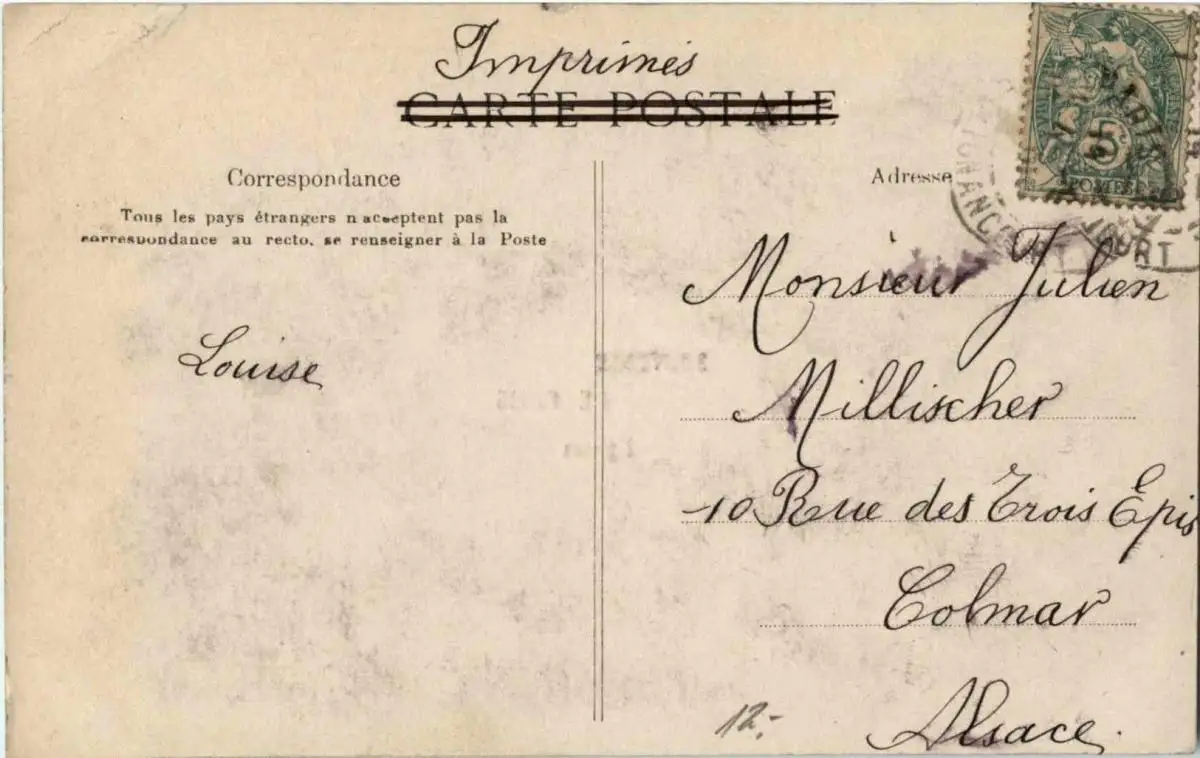 Imprimés
CARTE POSTALE
Correspondance
Adresse
Tous les pays étrangers n acceptent pas la
correspondance au recto, se renseigner à la Poste
Louise
Monsieur Julien
Millischer
10 Rue des Trois Epis
Colmar
Alsace.
12.-
5c
POSTES